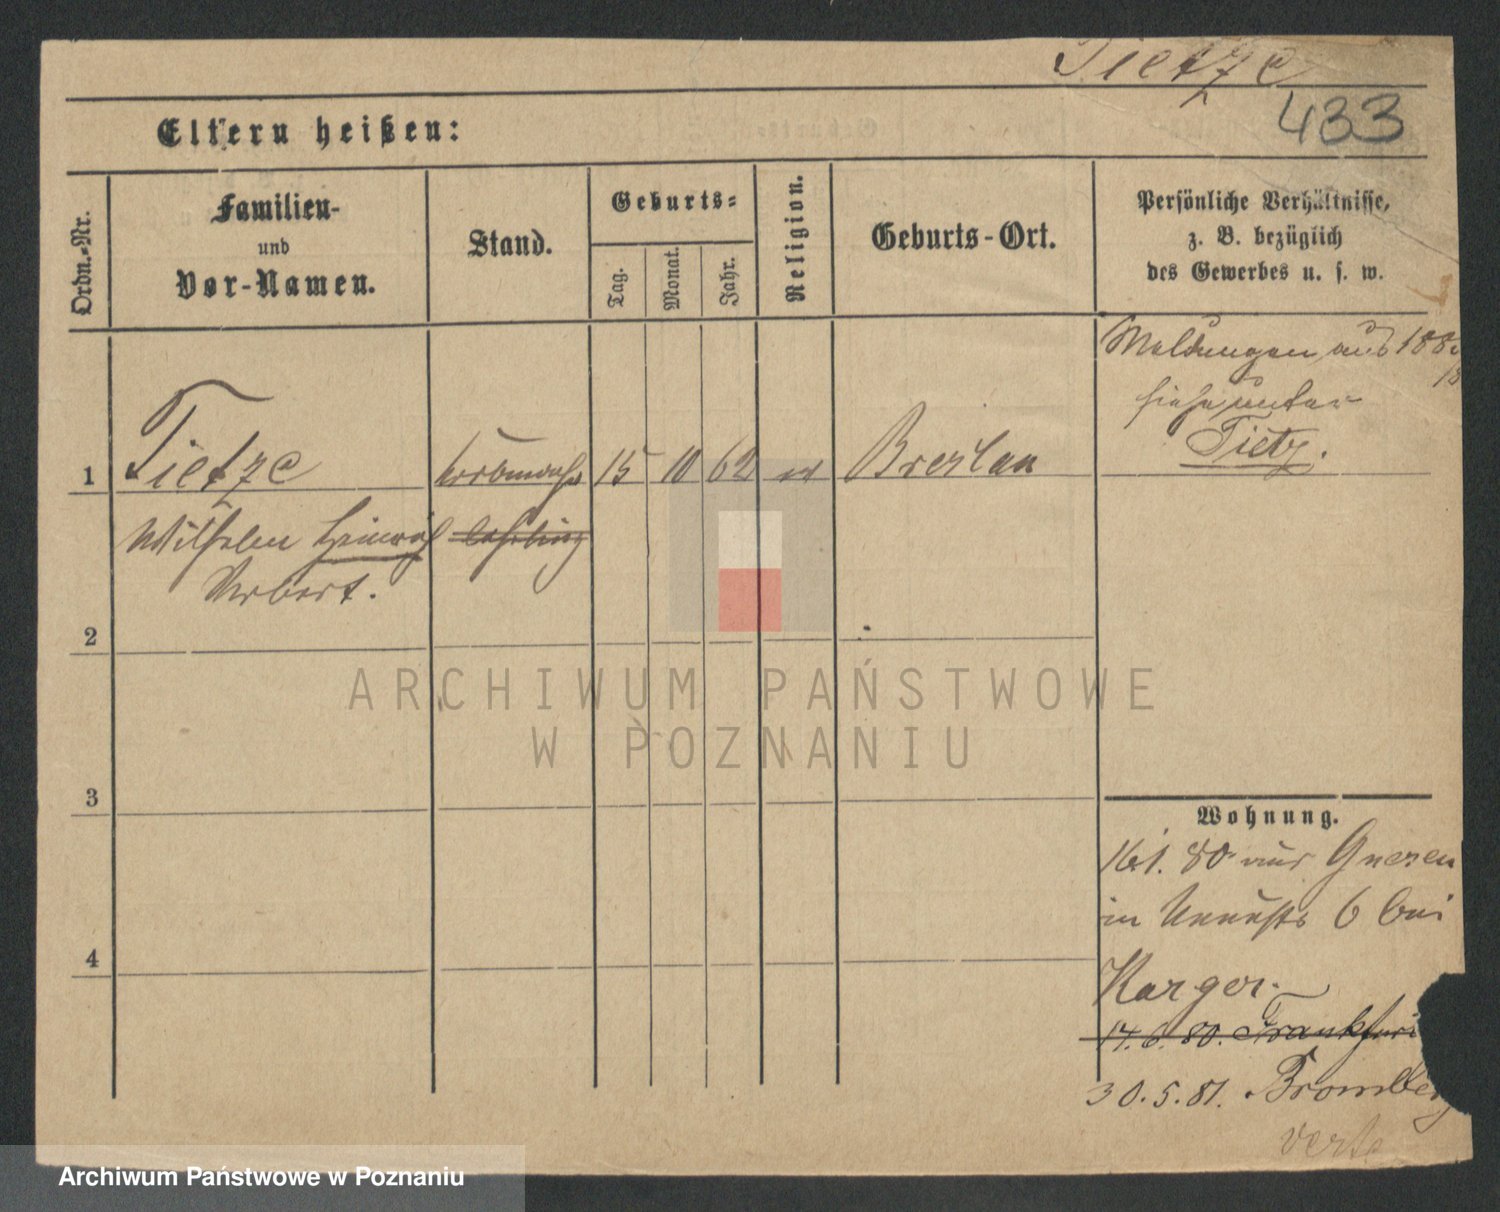 Tietze
433
Eltern heißen:
Ordn.-Nr.
Familien-
und
Vor-Namen.
Stand.
Geburts-
Tag.
Monat.
Jahr.
Religion.
Geburts-Ort.
Persönliche Verhältnisse,
z. B. bezüglich
des Gewerbes u. s. w.
Meldungen aus 188
siehe unter
Tietz.
1 Tietze 15 10 62 Breslau
Wilhelm Heinrich Lehrling
Herbert.
2
3
4
Wohnung.
16.1.80 aus Gnesen
in 6 bei
Karger.
14.6.80. Frankfurt
30.5.81. Bromberg
verte
ARCHIWUM PAŃSTWOWE
W POZNANIU
Archiwum Państwowe w Poznaniu